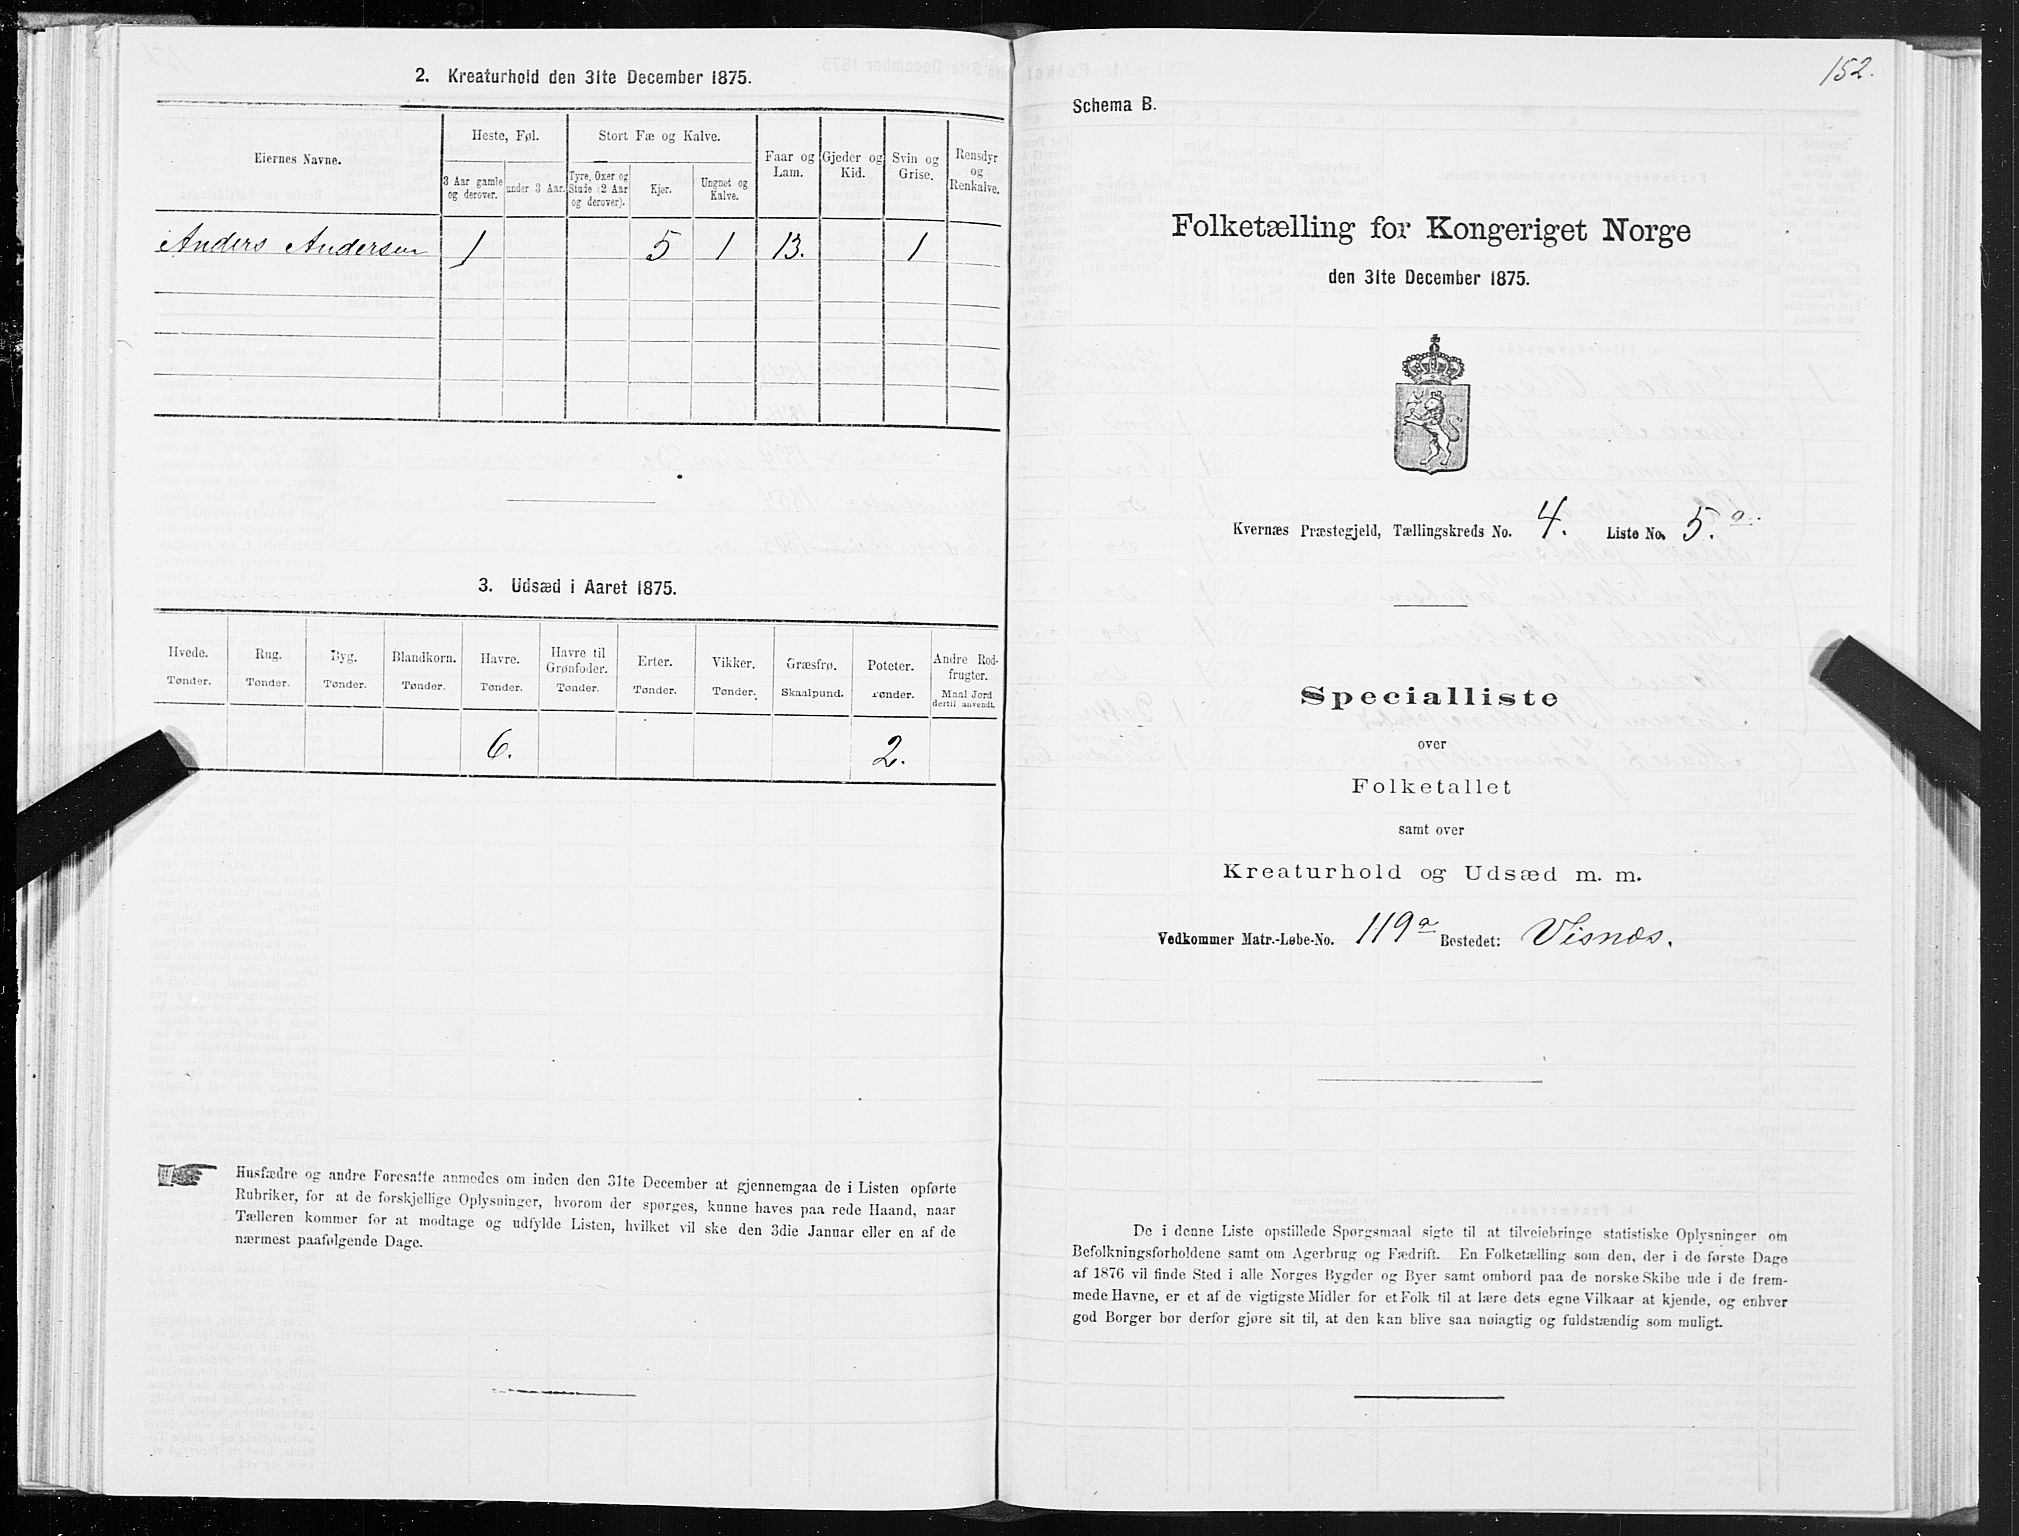 2. Kreaturhold den 31te December 1875.
Eiernes Navne.
Heste, Føl.
Stort Fæ og Kalve.
Faar og Lam.
Gjeder og Kid.
Svin og Grise.
Rensdyr og Renkalve.
3 Aar gamle og derover.
under 3 Aar.
Tyre, Oxer og Stude (2 Aar og derover).
Kjør.
Ungnet og Kalve.
Anders Andersen 1 5 1 13. 1
3. Udsæd i Aaret 1875.
Hvede. Rug. Byg. Blandkorn. Havre. Havre til Grønfoder. Erter. Vikker. Græsfrø. Poteter. Andre Rodfrugter.
Tønder. Tønder. Tønder. Tønder. Tønder. Tønder. Tønder. Tønder. Skaalpund. Tønder. Maal Jord dertil anvendt.
6. 2.
Husfædre og andre Foresatte anmodes om inden den 31te December at gjennemgaa de i Listen opførte
Rubriker, for at de forskjellige Oplysninger, hvorom der spørges, kunne haves paa rede Haand, naar
Tælleren kommer for at modtage og udfylde Listen, hvilket vil ske den 3die Januar eller en af de
nærmest paafølgende Dage.
152.
Schema B.
Folketælling for Kongeriget Norge
den 31te December 1875.
Kvernæs Præstegjeld, Tællingskreds No. 4. Liste No. 5.a.
Specialliste
over
Folketallet
samt over
Kreaturhold og Udsæd m. m.
Vedkommer Matr.-Løbe-No. 119a Bostedet: Visnæs.
De i denne Liste opstillede Spørgsmaal sigte til at tilveiebringe statistiske Oplysninger om
Befolkningsforholdene samt om Agerbrug og Fædrift. En Folketælling som den, der i de første Dage
af 1876 vil finde Sted i alle Norges Bygder og Byer samt ombord paa de norske Skibe ude i de frem-
mede Havne, er et af de vigtigste Midler for et Folk til at lære dets egne Vilkaar at kjende, og enhver
god Borger bør derfor gjøre sit til, at den kan blive saa nøiagtig og fuldstændig som muligt.